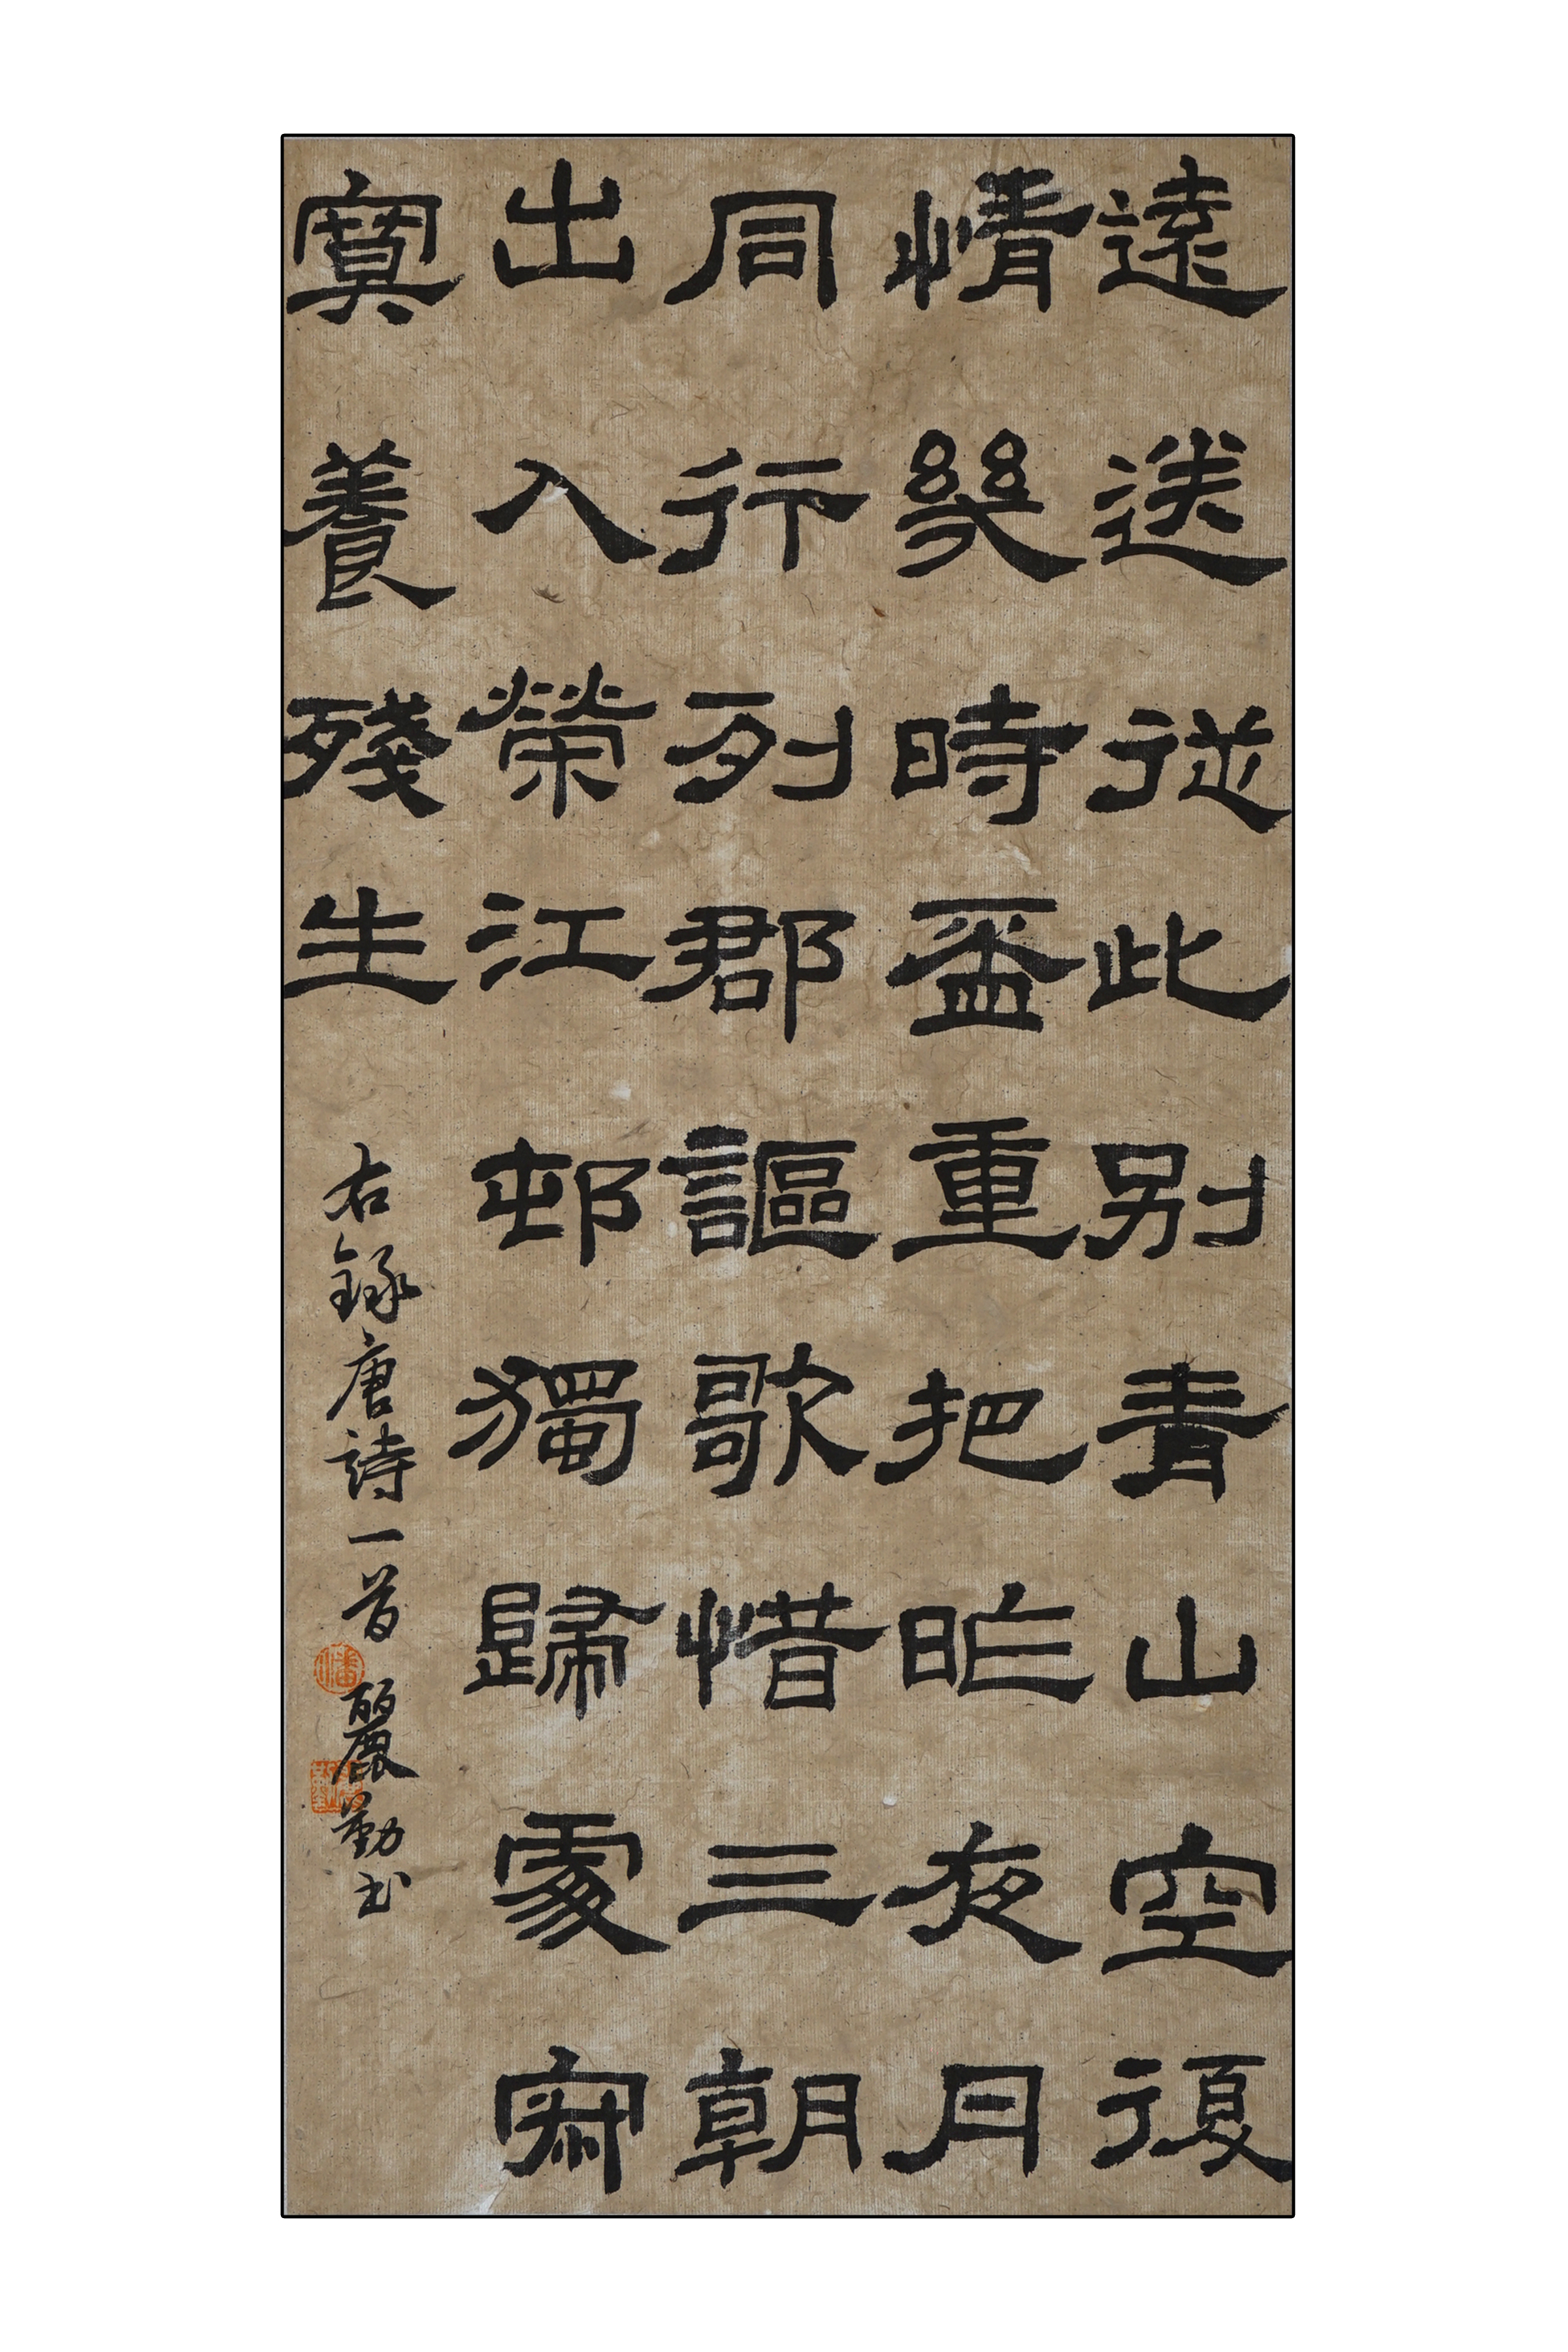 遠送從此别青山空復
情幾時盃重把昨夜月
同行列郡謳歌惜三朝
出入榮江邨獨歸處寂
寞養殘生
右錄唐詩一首 麗勤书